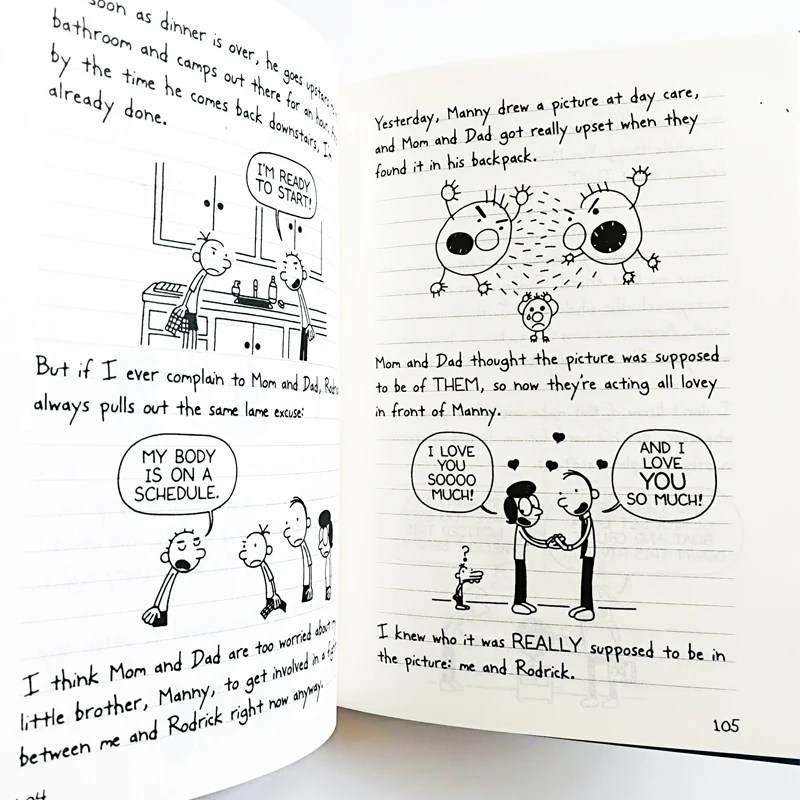 soon as dinner is over, he goes upstairs
bathroom and camps out there for an hour,
by the time he comes back downstairs, I'm
already done.
I'M READY
TO START!
But if I ever complain to Mom and Dad,
always pulls out the same lame excuse:
MY BODY
IS ON A
SCHEDULE.
I think Mom and Dad are too worried about
little brother, Manny, to get involved in a
between me and Rodrick right now anyway.
Yesterday, Manny drew a picture at day care,
and Mom and Dad got really upset when they
found it in his backpack.
Mom and Dad thought the picture was supposed
to be of THEM, so now they're acting all lovey
in front of Manny.
I LOVE
YOU
SOOOO
MUCH!
AND I
LOVE
YOU
SO MUCH!
?
I knew who it was REALLY supposed to be in
the picture: me and Rodrick.
105